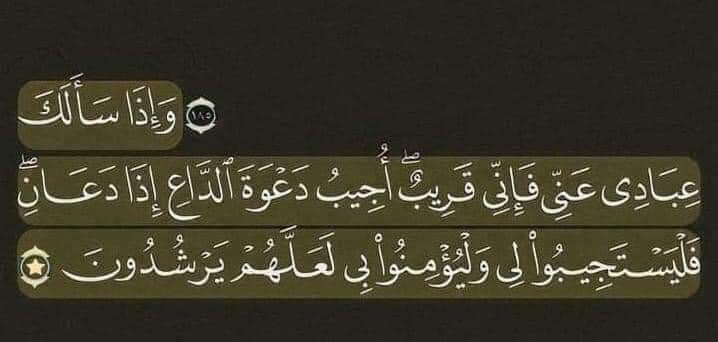 ١٨٥ وَإِذَا سَأَلَكَ
عِبَادِى عَنِّى فَإِنِّى قَرِيبٌ ۖ أُجِيبُ دَعْوَةَ ٱلدَّاعِ إِذَا دَعَانِ ۖ
فَلْيَسْتَجِيبُوا۟ لِى وَلْيُؤْمِنُوا۟ بِى لَعَلَّهُمْ يَرْشُدُونَ